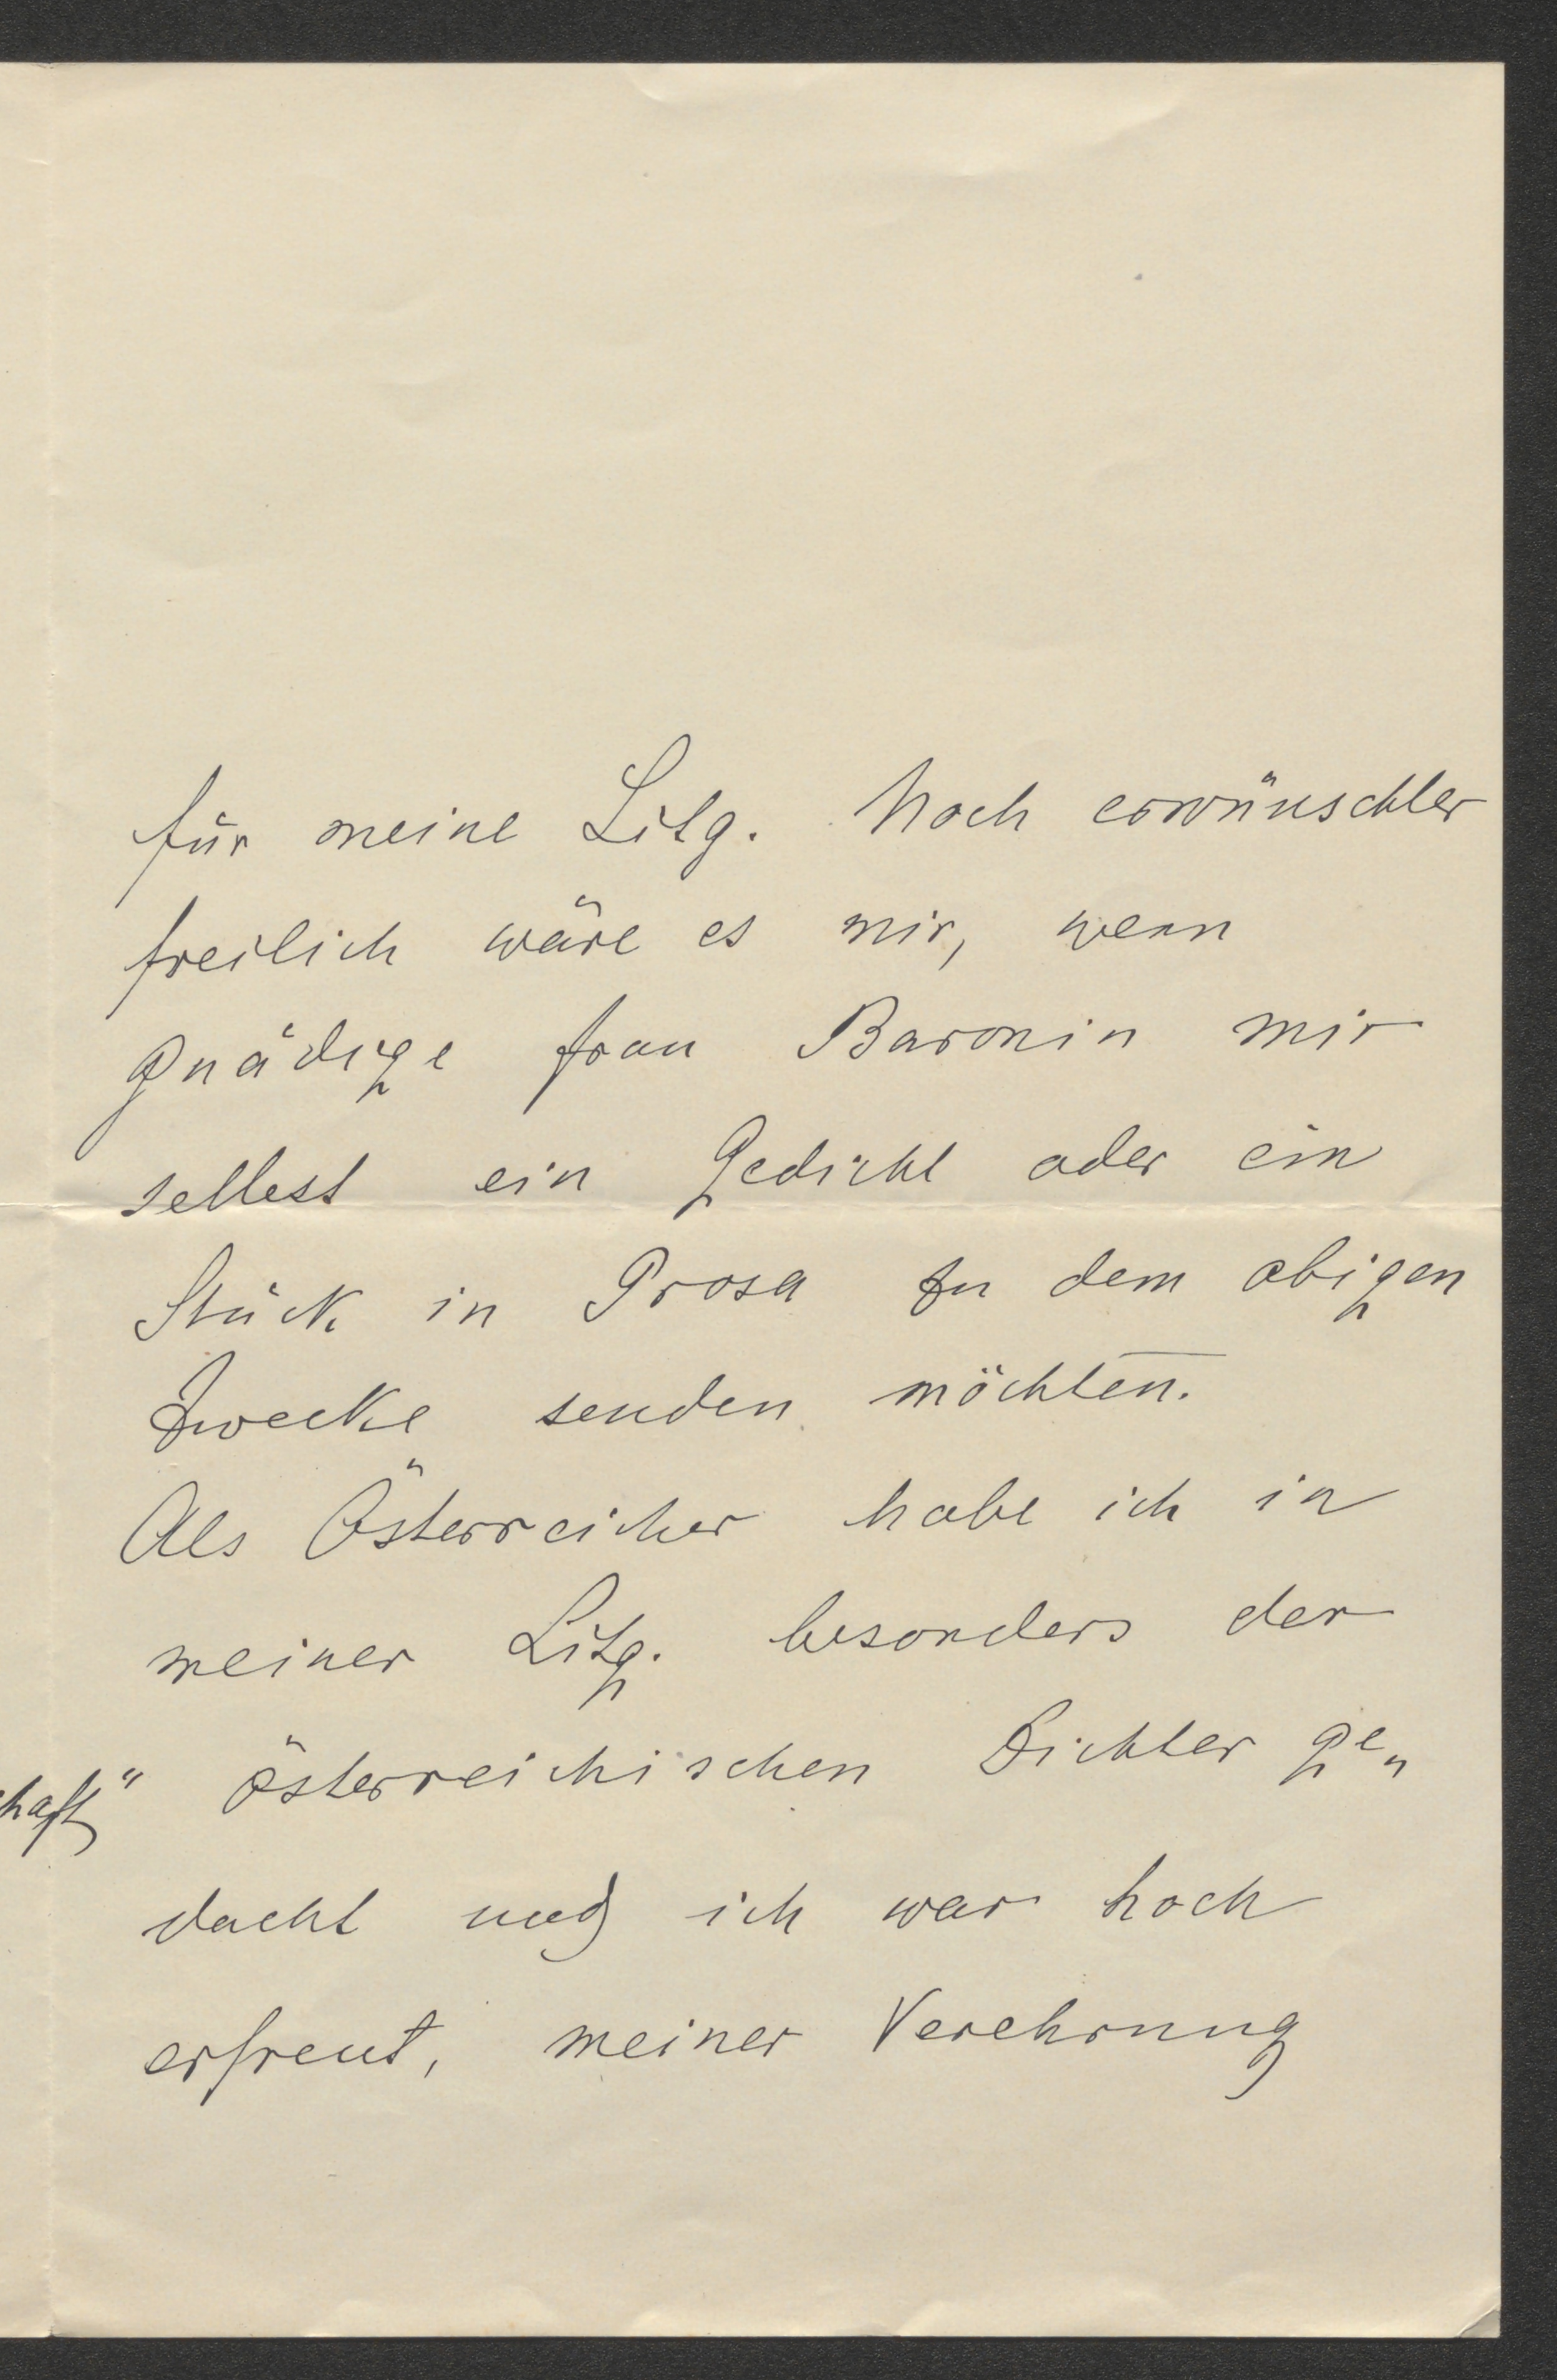 für meine Litg. Noch erwünschter
freilich wäre es mir, wenn
gnädige Frau Baronin mir
selbest ein Gedicht oder ein
Stück in Prosa zu dem obigen
Zwecke senden möchten.
Als Österreicher habe ich in
meiner Litg. besonders der
österreichischen Dichter ge„
dacht und ich war hoch
erfreut, meiner Verehrung